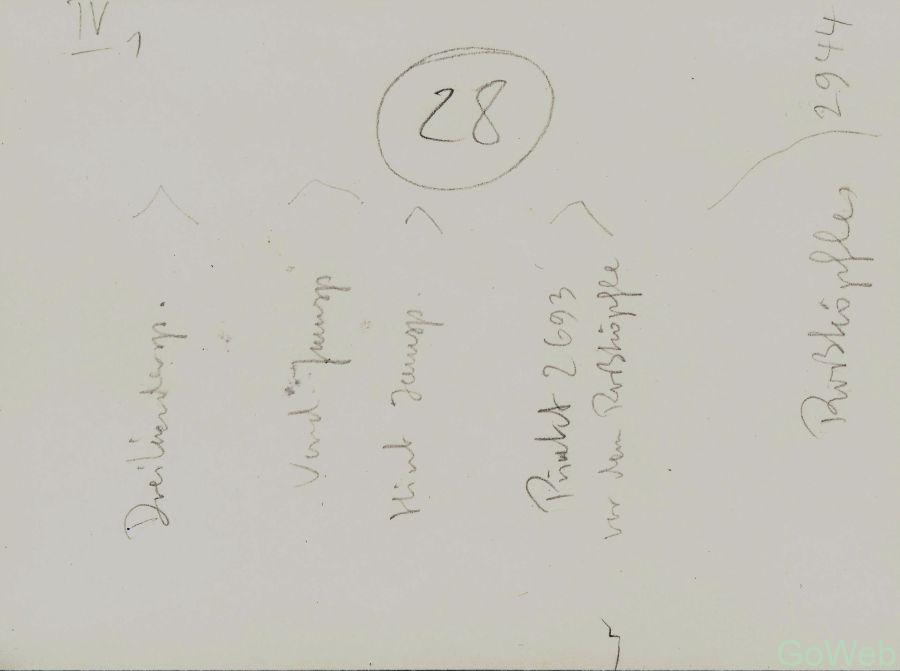 IV
28
Dreiländersp.
Vord. Jamsp
Hint Jamsp.
Punkt 2693
vor dem Roßköpfle
Roßköpfle
2944
GoWeb